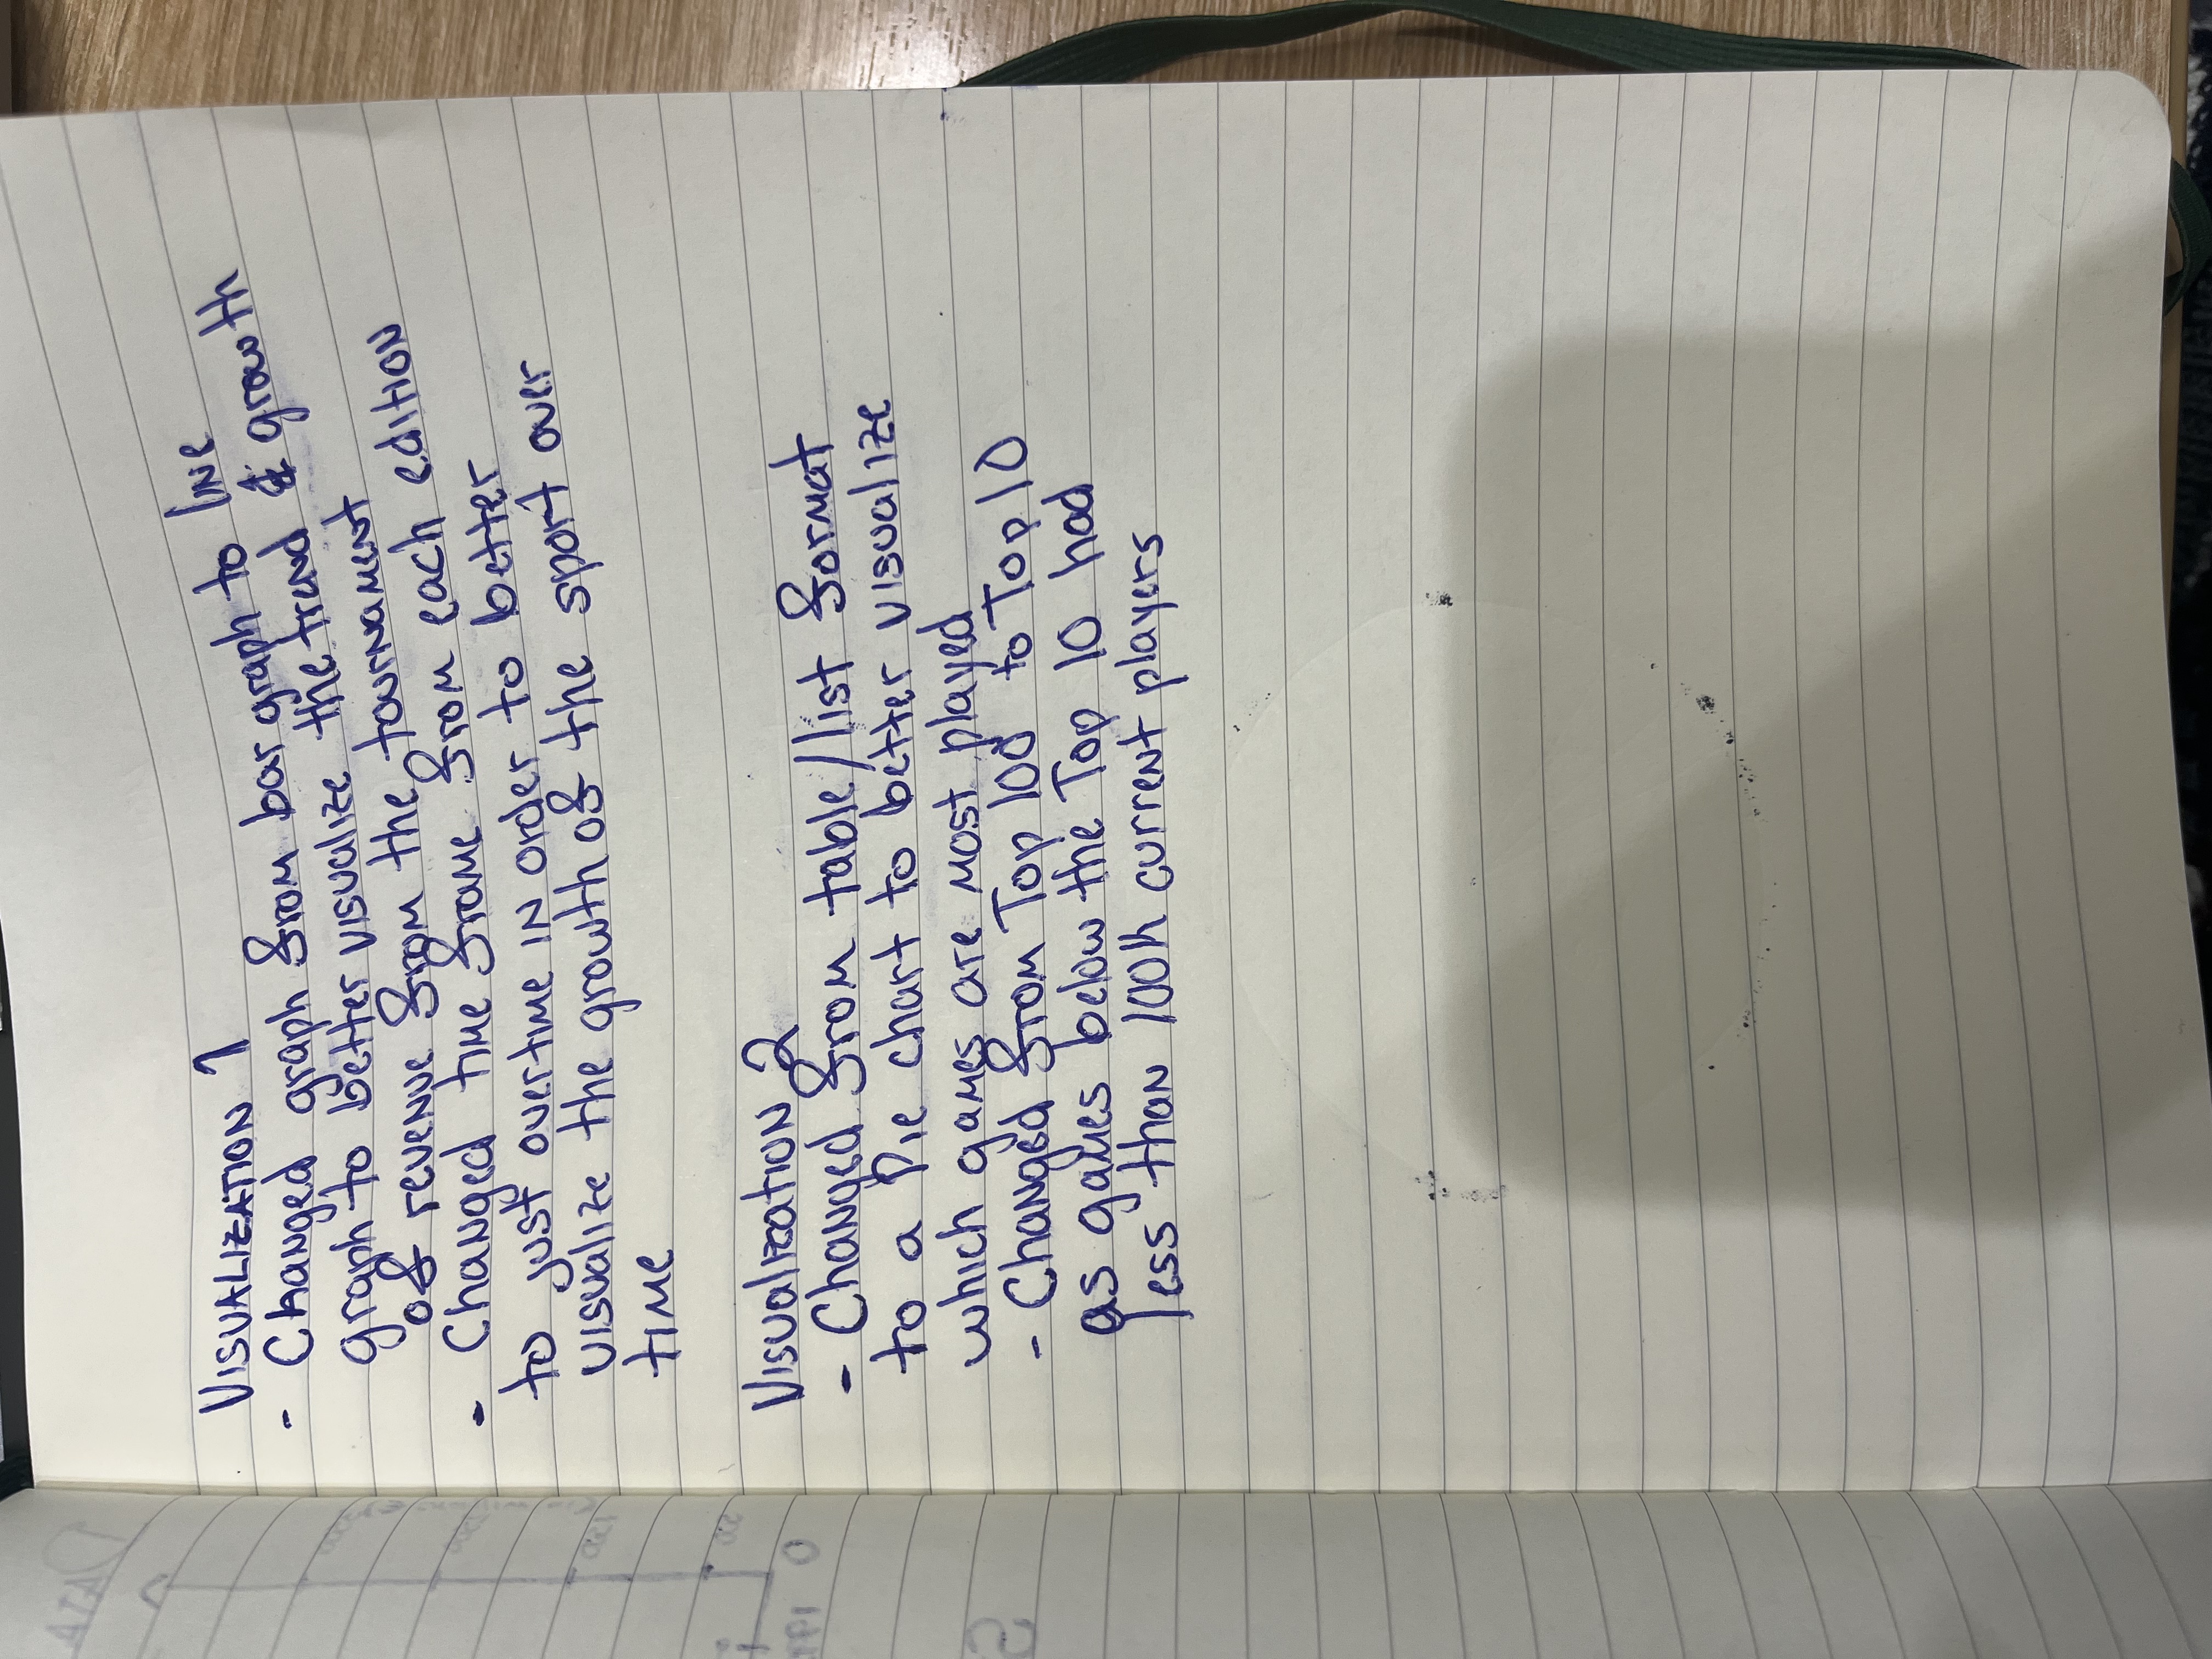 VISUALIZATION 1
- Changed graph from bar graph to line
graph to better visualize the trend & growth
of revenue from the tournament
- Changed time frame from each edition
to just overtime in order to better
visualize the growth of the sport over
time
Visualization 2
- Changed from table/list format
to a Pie chart to better visualize
which games are most played
- Changed from Top 100 to Top 10
as games below the Top 10 had
less than 100K current players